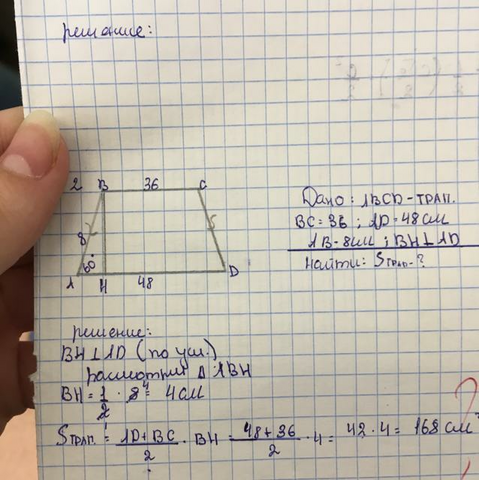 решение:
2 B 36 C
8
60°
A H 48 D
Дано: ABCD-трап.
BC=36 ; AD=48см
AB-8см ; BH⊥AD
Найти: Sтрап-?
решение:
BH⊥AD (по усл.)
рассмотрим Δ ABH
BH=1/2 · 8⁴= 4см
Sтрап.= AD+BC/2 · BH = 48+36/2 · 4= 42·4= 168см²
?